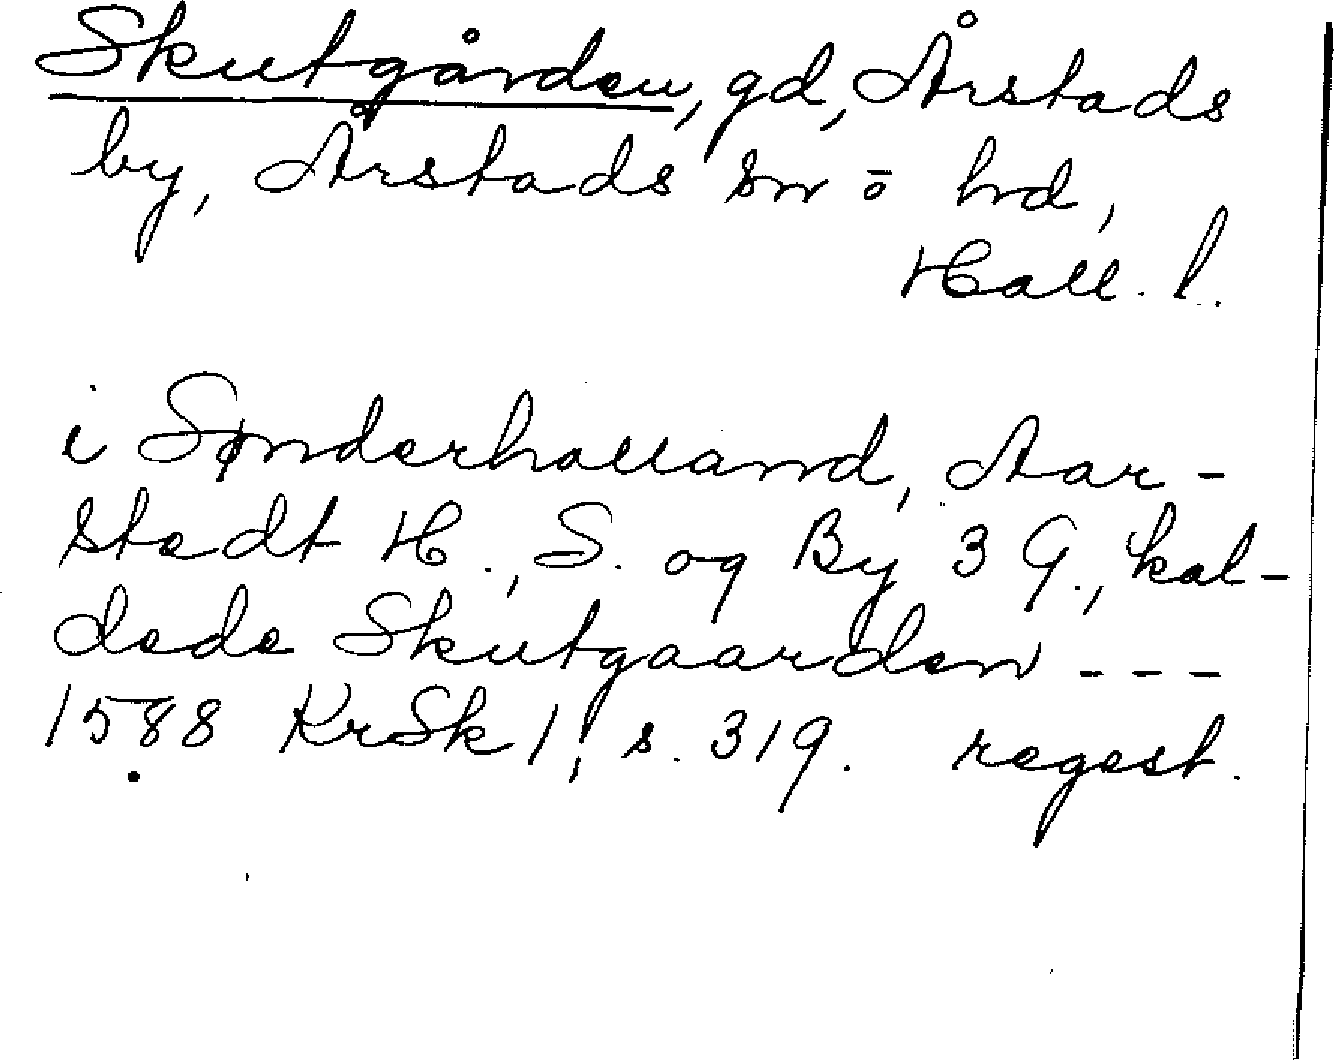 Skutgården, gd, Årstads
by, Årstads sn ō hd,
Hall. l.
i Sønderhalland, Aar-
stadt H., S. og By 3 G., kal-
dede Skutgaarden ---
1588 KrSk 1, s. 319. regest.